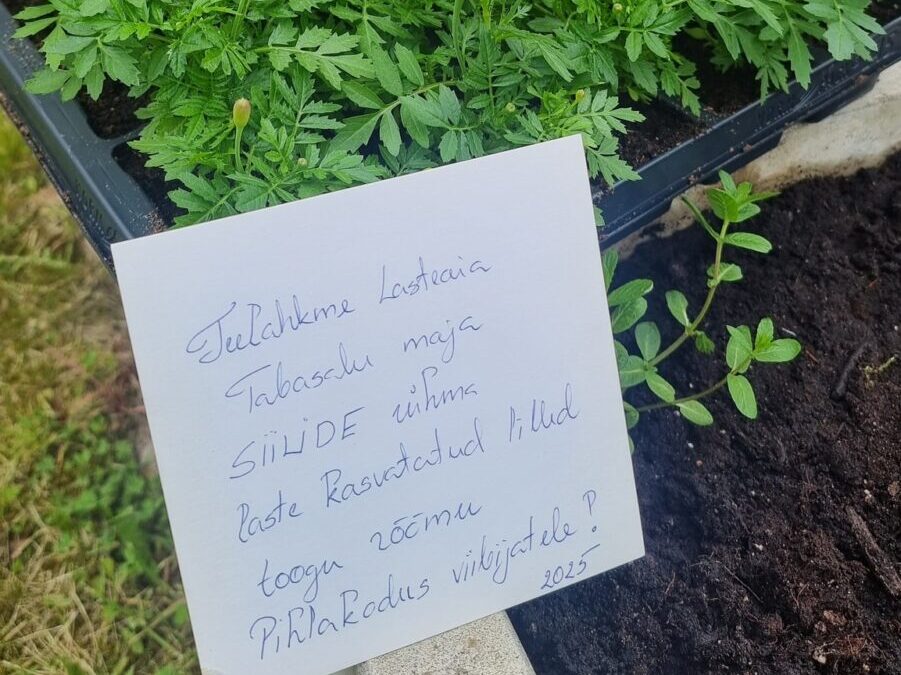 Teelahkme Lasteaia
Tabasalu maja
SIILIDE rühma
laste kasvatatud lilled
toogu rõõmu
Pihlakodus viibijatele!
2025